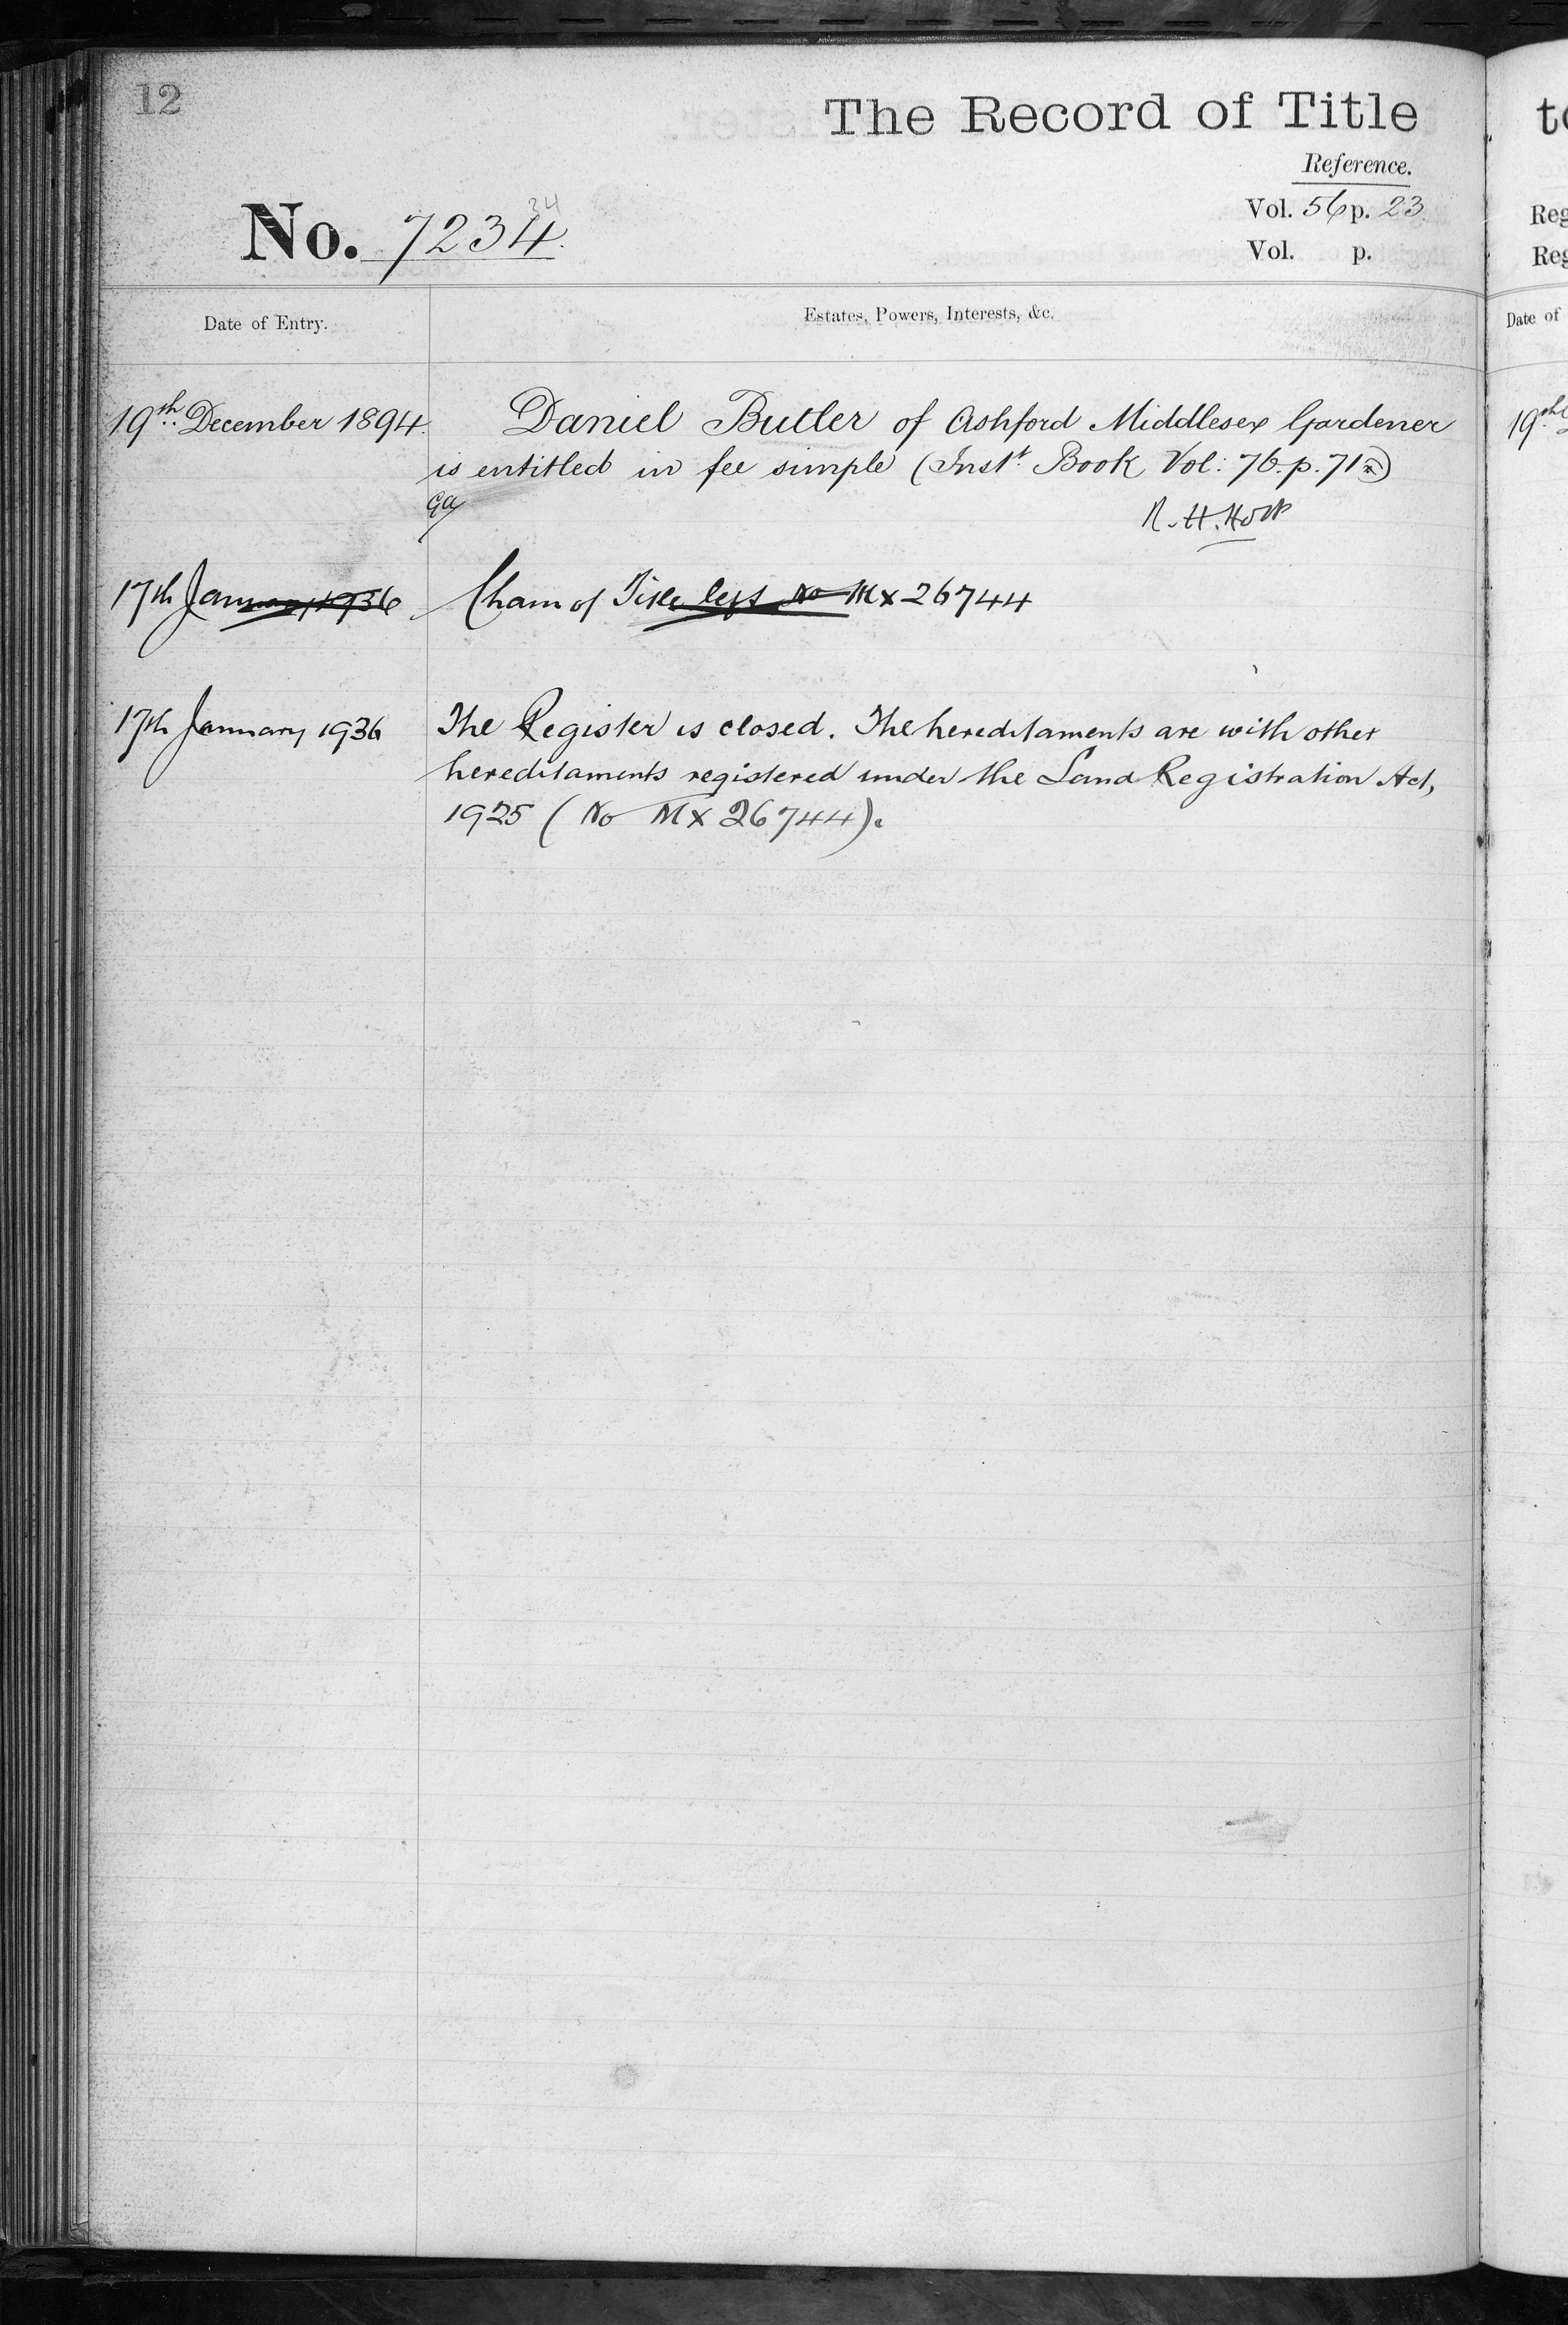 12
The Record of Title
Reference.
No. 7234.
34
Vol. 56 p. 23
Vol. p.
Date of Entry.
Estates, Powers, Interests, &c.
19th December 1894.
Daniel Butler of Ashford Middlesex Gardener
is entitled in fee simple (Inst. Book Vol: 76. p. 71
R. H. Holt
17th January 1936
of Title No MX 26744
17th January 1936
The Register is closed. The hereditaments are with other
hereditaments registered under the Land Registration Act,
1925 (No MX 26744).
Reg
Reg
Date of
19th